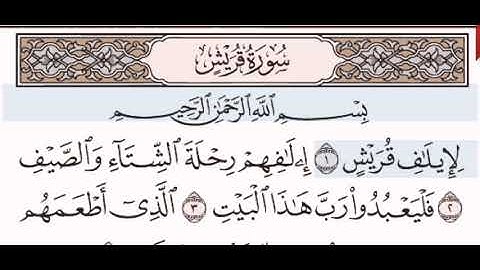 سُورَةُ قُرَيْشٍ
بِسْمِ اللَّهِ الرَّحْمَٰنِ الرَّحِيمِ
لِإِيلَافِ قُرَيْشٍ ١ إِۦلَافِهِمْ رِحْلَةَ الشِّتَآءِ وَالصَّيْفِ
٢ فَلْيَعْبُدُوا۟ رَبَّ هَٰذَا الْبَيْتِ ٣ الَّذِىٓ أَطْعَمَهُم